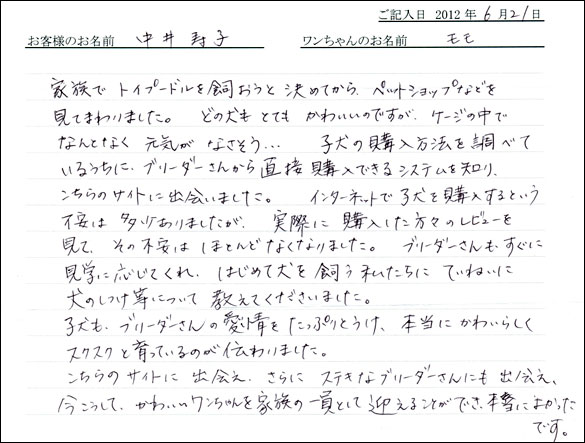 ご記入日 2012 年 6 月 21 日
お客様のお名前 中井 寿子 ワンちゃんのお名前 モモ
家族で トイプードルを飼おうと 決めてから、ペットショップなどを
見てまわりました。 どの犬も とても かわいいのですが、ケージの中で
なんとなく 元気が なさそう… 子犬の購入方法を調べて
いるうちに、ブリーダーさんから直接購入できるシステムを知り、
こちらのサイトに出会いました。 インターネットで子犬を購入するという
不安は 多少ありましたが、 実際に 購入した方々のレビューを
見て、その不安は ほとんどなくなりました。 ブリーダーさんも、すぐに
見学に応じてくれ、はじめて犬を飼う私たちに ていねいに
犬のしつけ等について 教えてくださいました。
子犬も、ブリーダーさんの愛情を たっぷりとうけ、本当にかわいらしく
スクスクと育っているのが伝わりました。
こちらのサイトに 出会え、さらに ステキなブリーダーさんにも 出会え、
今こうして、かわいいワンちゃんを家族の一員として 迎えることができ、本当によかった
です。